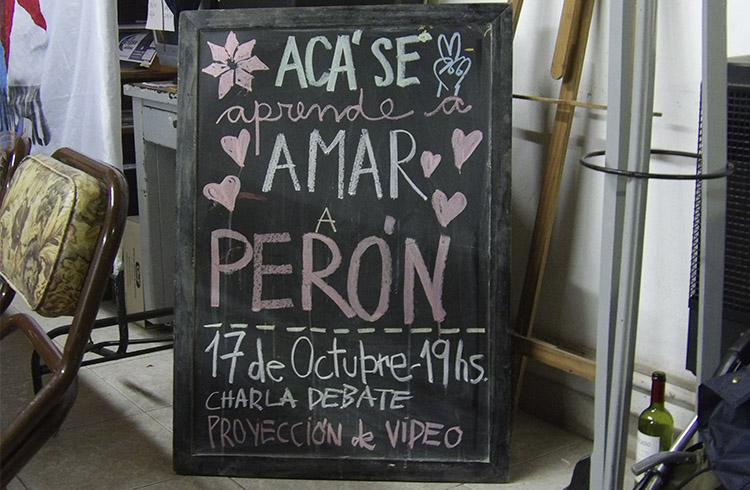 ACÁ SE
aprende a
AMAR
A
PERÓN
17 de Octubre - 19 hs.
CHARLA DEBATE
PROYECCIÓN de VIDEO